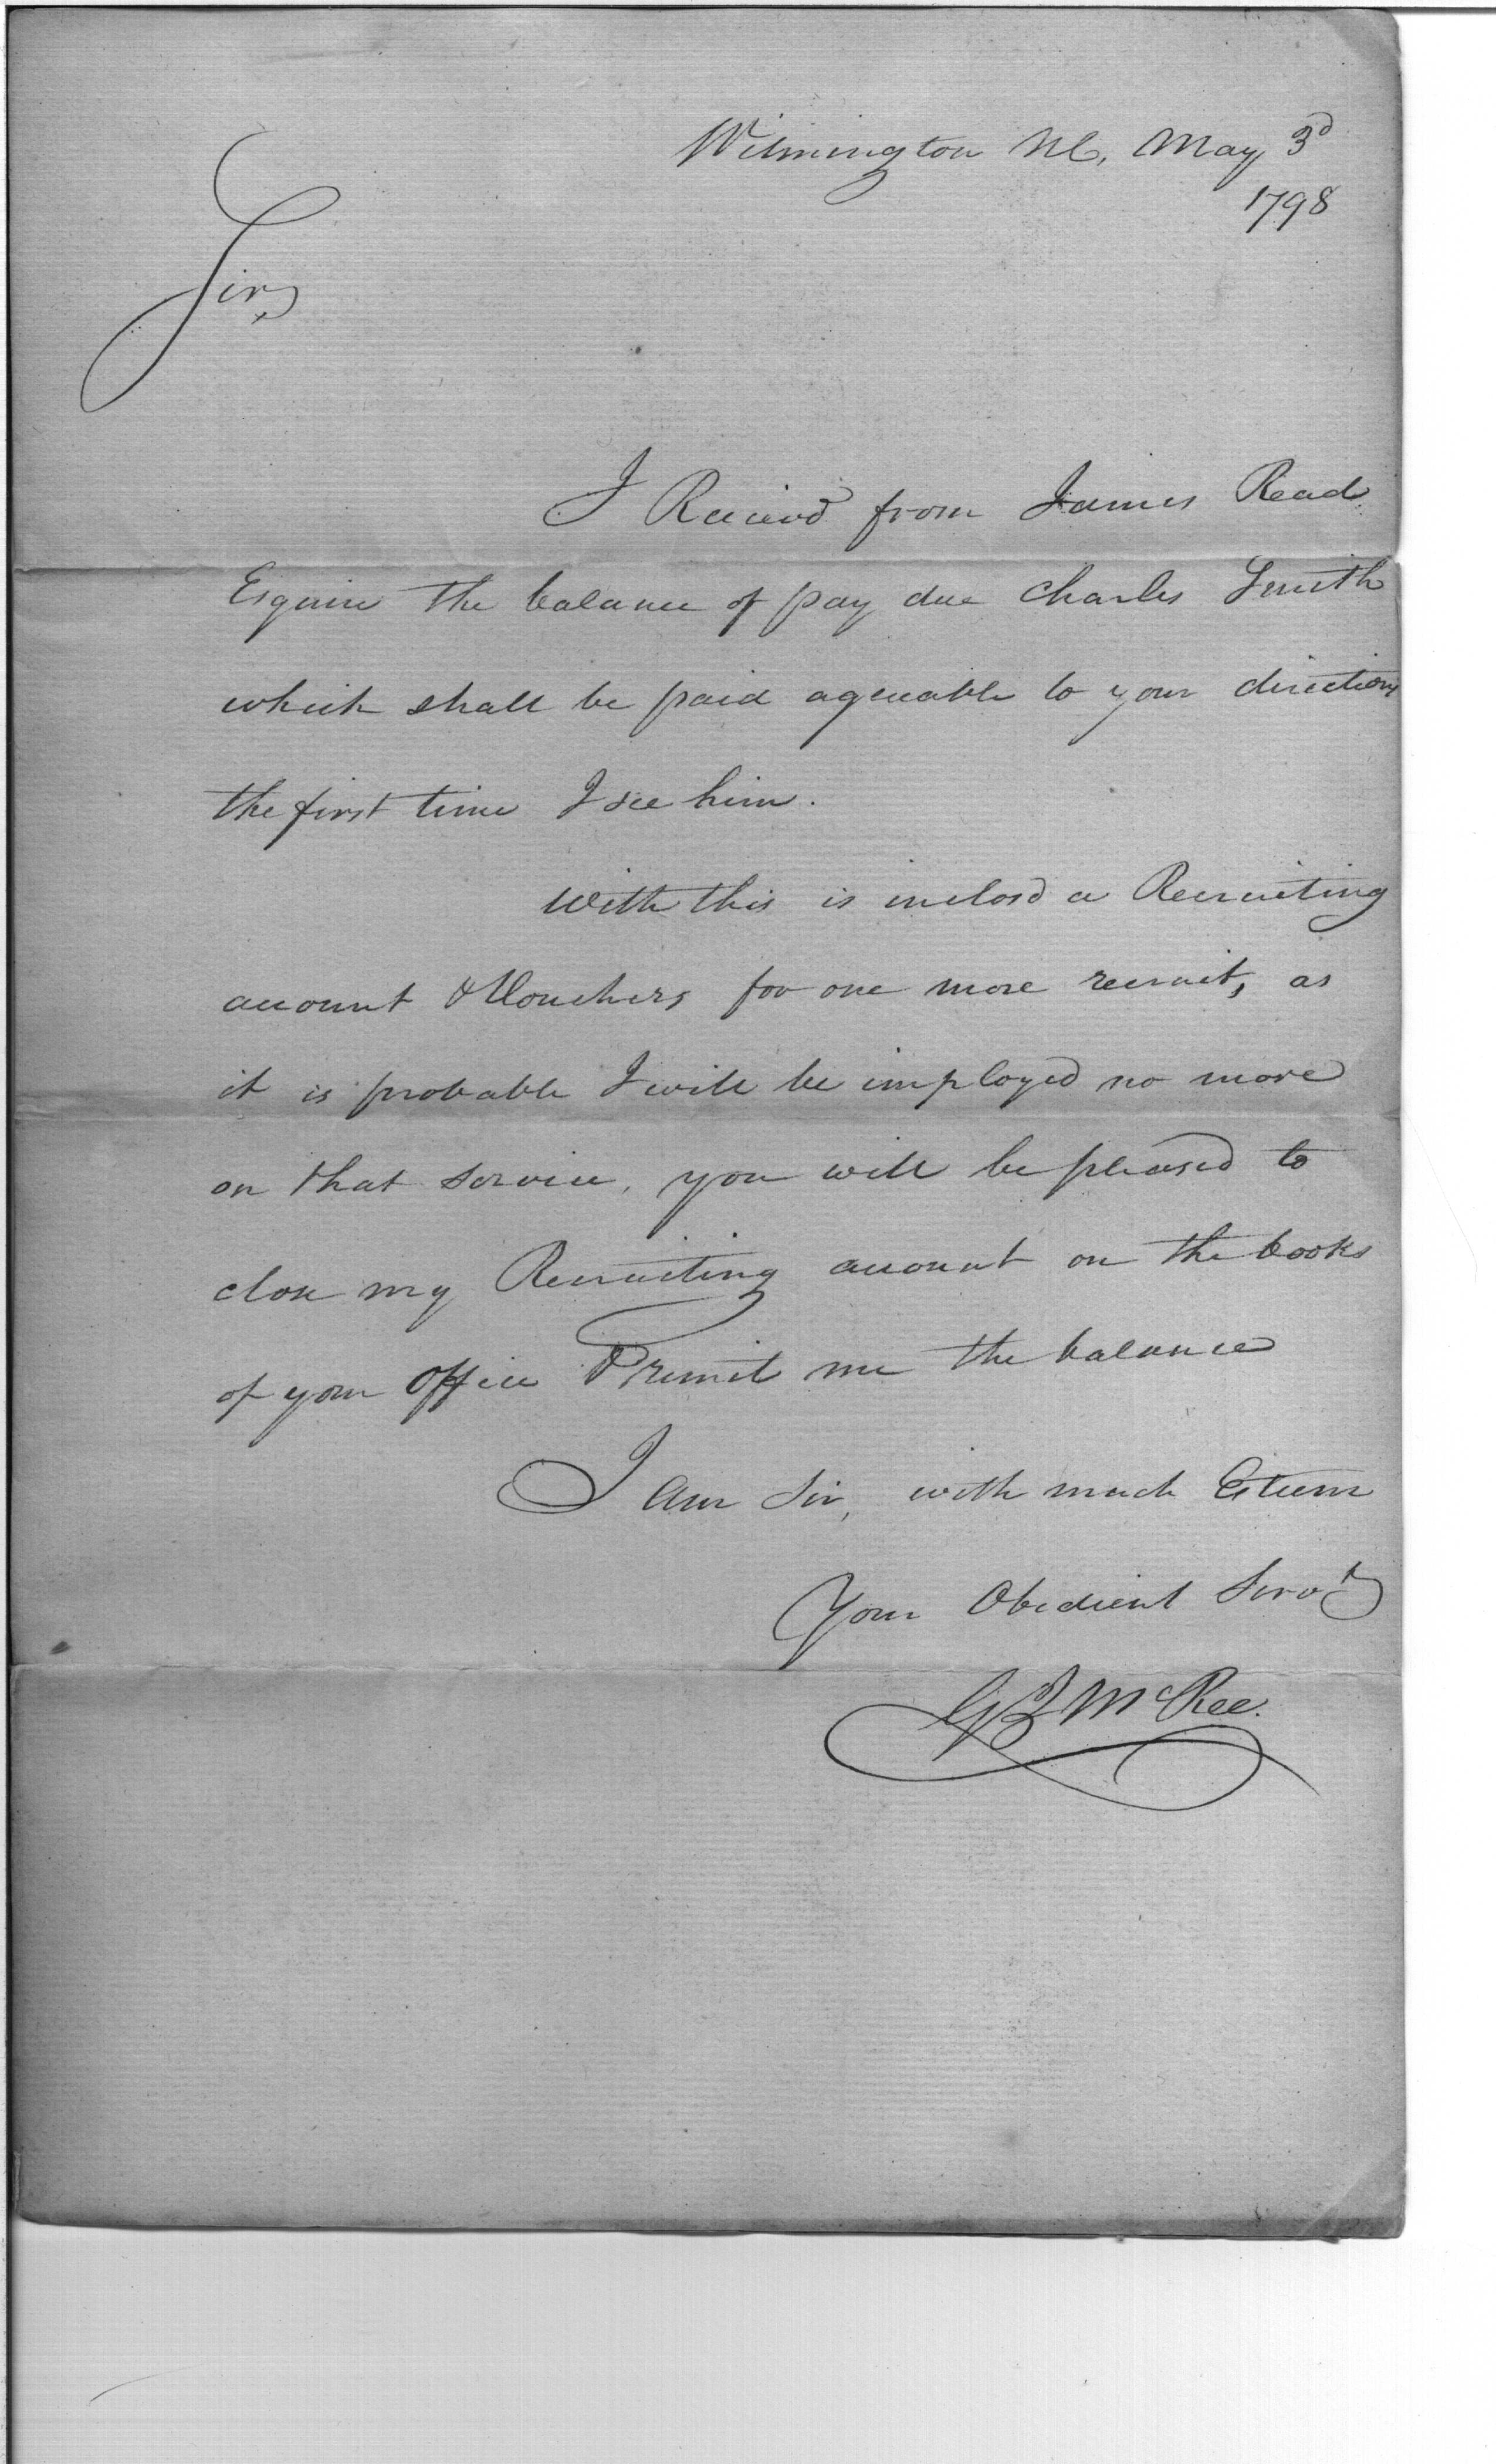 Wilmington NC, May 3d
1798
Sir,
I Receivd from James Read
Esquire the balance of pay due Charles Smith
which shall be paid agreeable to your directions
the first time I see him.
With this is inclosd a Recruiting
account & Vouchers for one more recruit, as
it is probable I will be imployed no more
on that service, you will be pleased to
close my Recruiting account on the books
of your Office & remit me the balance
I am Sir, with much Esteem
Your Obedient Servt
G J McRee.